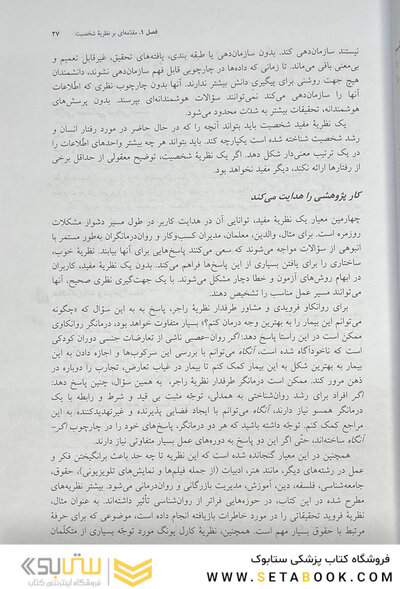 فصل ۱. مقدّمه‌ای بر نظریهٔ شخصیت ۲۷
نیستند سازمان‌دهی کند. بدون سازمان‌دهی یا طبقه بندی، یافته‌های تحقیق، غیرقابل تعمیم و
بی‌معنی باقی می‌ماند. تا زمانی که داده‌ها در چارچوبی قابل فهم سازمان‌دهی نشوند، دانشمندان
هیچ جهت روشنی برای پیگیری دانش بیشتر ندارند. آنها بدون چارچوب نظری که اطلاعات
آنها را سازمان‌دهی می‌کند نمی‌توانند سؤالات هوشمندانه‌ای بپرسند. بدون پرسش‌های
هوشمندانه، تحقیقات بیشتر به شدّت محدود می‌شود.
یک نظریهٔ مفید شخصیت باید بتواند آنچه را که در حال حاضر در مورد رفتار انسان و
رشد شخصیت شناخته شده است یکپارچه کند. باید بتواند هر چه بیشتر واحدهای اطلاعات را
در یک ترتیب معنی‌دار شکل دهد. اگر یک نظریهٔ شخصیت، توضیح معقولی از حداقل برخی
از رفتارها ارائه نکند، دیگر مفید نخواهد بود.
کار پژوهشی را هدایت می‌کند
چهارمین معیار یک نظریهٔ مفید، توانایی آن در هدایت کاربر در طول مسیر دشوار مشکلات
روزمره است. برای مثال، والدین، معلمان، مدیران کسب‌وکار و روان‌درمانگران به‌طور مستمر با
انبوهی از سؤالات مواجه می‌شوند که سعی می‌کنند پاسخ‌هایی برای آنها بیابند. نظریهٔ خوب،
ساختاری را برای یافتن بسیاری از این پاسخ‌ها فراهم می‌کند. بدون یک نظریهٔ مفید، کاربران
در ابهام روش‌های آزمون و خطا دچار مشکل می‌شوند. با یک جهت‌گیری نظری صحیح، آنها
می‌توانند مسیر عمل مناسب را تشخیص دهند.
برای روانکاو فرویدی و مشاور طرفدار نظریهٔ راجر، پاسخ به به این سؤال که «چگونه
می‌توانم این بیمار را به بهترین وجه درمان کنم؟» بسیار متفاوت خواهد بود، درمانگر روانکاوی
ممکن است در این راستا پاسخ دهد: اگر روان‌عصبی ناشی از تعارضات جنسی دوران کودکی
است که ناخودآگاه شده است، آنگاه می‌توانم با بررسی این سرکوب‌ها و اجازه دادن به این
بیمار به بهترین شکل به این بیمار کمک کنم تا بیمار در غیاب تعارض، تجارب را دوباره در
ذهن مرور کند. ممکن است درمانگر طرفدار نظریهٔ راجر، به همین سؤال، چنین پاسخ دهد:
اگر افراد برای رشد روان‌شناختی به همدلی، توجّه مثبت بی قید و شرط و رابطه با یک
درمانگر همسو نیاز دارند، آنگاه می‌توانم با ایجاد فضایی پذیرنده و غیرتهدیدکننده به این
مراجع کمک کنم. توجّه داشته باشید که هر دو درمانگر، پاسخ‌های خود را در چارچوب اگر-
آنگاه ساخته‌اند، حتّی اگر این دو پاسخ به دوره‌های عمل بسیار متفاوتی نیاز دارند.
همچنین در این معیار گنجانده شده است که این نظریه تا چه‌حد باعث برانگیختن فکر و
عمل در رشته‌های دیگر، مانند هنر، ادبیات (از جمله فیلم‌ها و نمایش‌های تلویزیونی)، حقوق،
جامعه‌شناسی، فلسفه، دین، آموزش، مدیریت بازرگانی و روان‌درمانی می‌شود. بیشتر نظریه‌های
مطرح شده در این کتاب، در حوزه‌هایی فراتر از روان‌شناسی تأثیر داشته‌اند. به عنوان مثال،
نظریهٔ فروید تحقیقاتی را در مورد خاطرات بازیافته انجام داده است، موضوعی که برای حرفهٔ
مرتبط با حقوق بسیار مهم است. همچنین، نظریهٔ کارل یونگ مورد توجّه بسیاری از متکلّمان
فروشگاه کتاب پزشکی ستابوک
WWW.SETABOOK.COM
ستابوک
فروشگاه اینترنتی کتاب